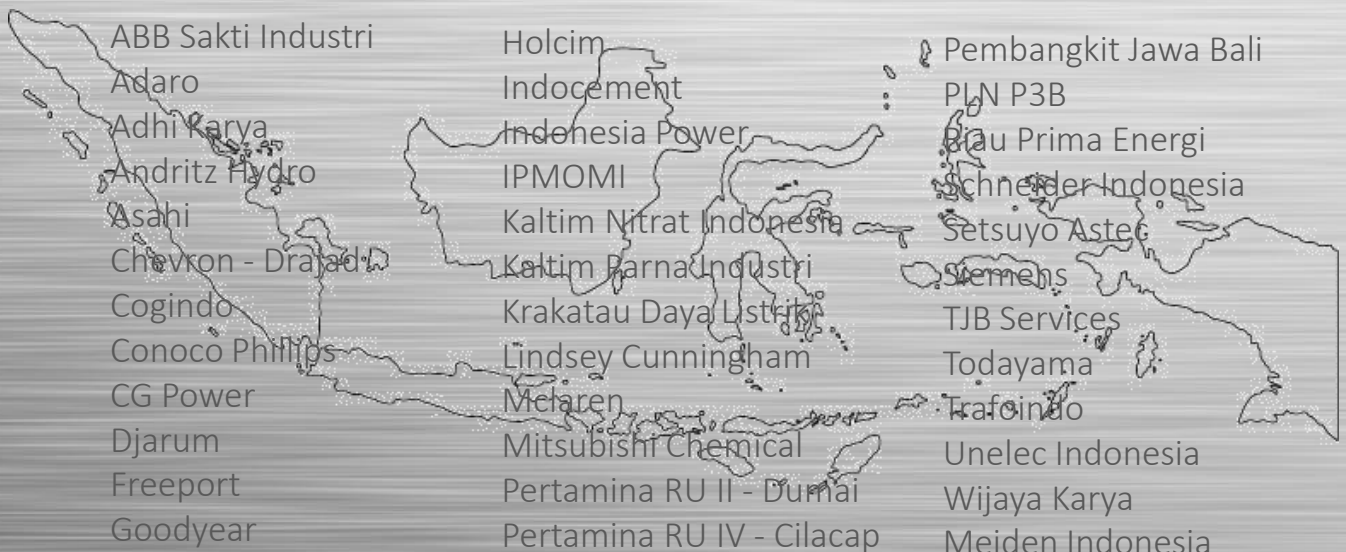 ABB Sakti Industri
Adaro
Adhi Karya
Andritz Hydro
Asahi
Chevron - Drajad
Cogindo
Conoco Phillips
CG Power
Djarum
Freeport
Goodyear
Holcim
Indocement
Indonesia Power
IPMOMI
Kaltim Nitrat Indonesia
Kaltim Parna Industri
Krakatau Daya Listrik
Lindsey Cunningham
Mclaren
Mitsubishi Chemical
Pertamina RU II - Dumai
Pertamina RU IV - Cilacap
Pembangkit Jawa Bali
PLN P3B
Riau Prima Energi
Schneider Indonesia
Setsuyo Astec
Siemens
TJB Services
Todayama
Trafoindo
Unelec Indonesia
Wijaya Karya
Meiden Indonesia